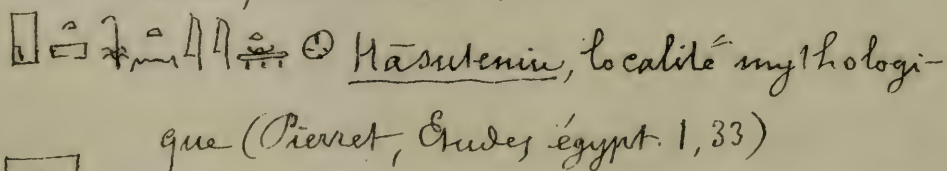 Hāsuteniu, localité mythologi-
que (Pierret, Études égypt. 1, 33)